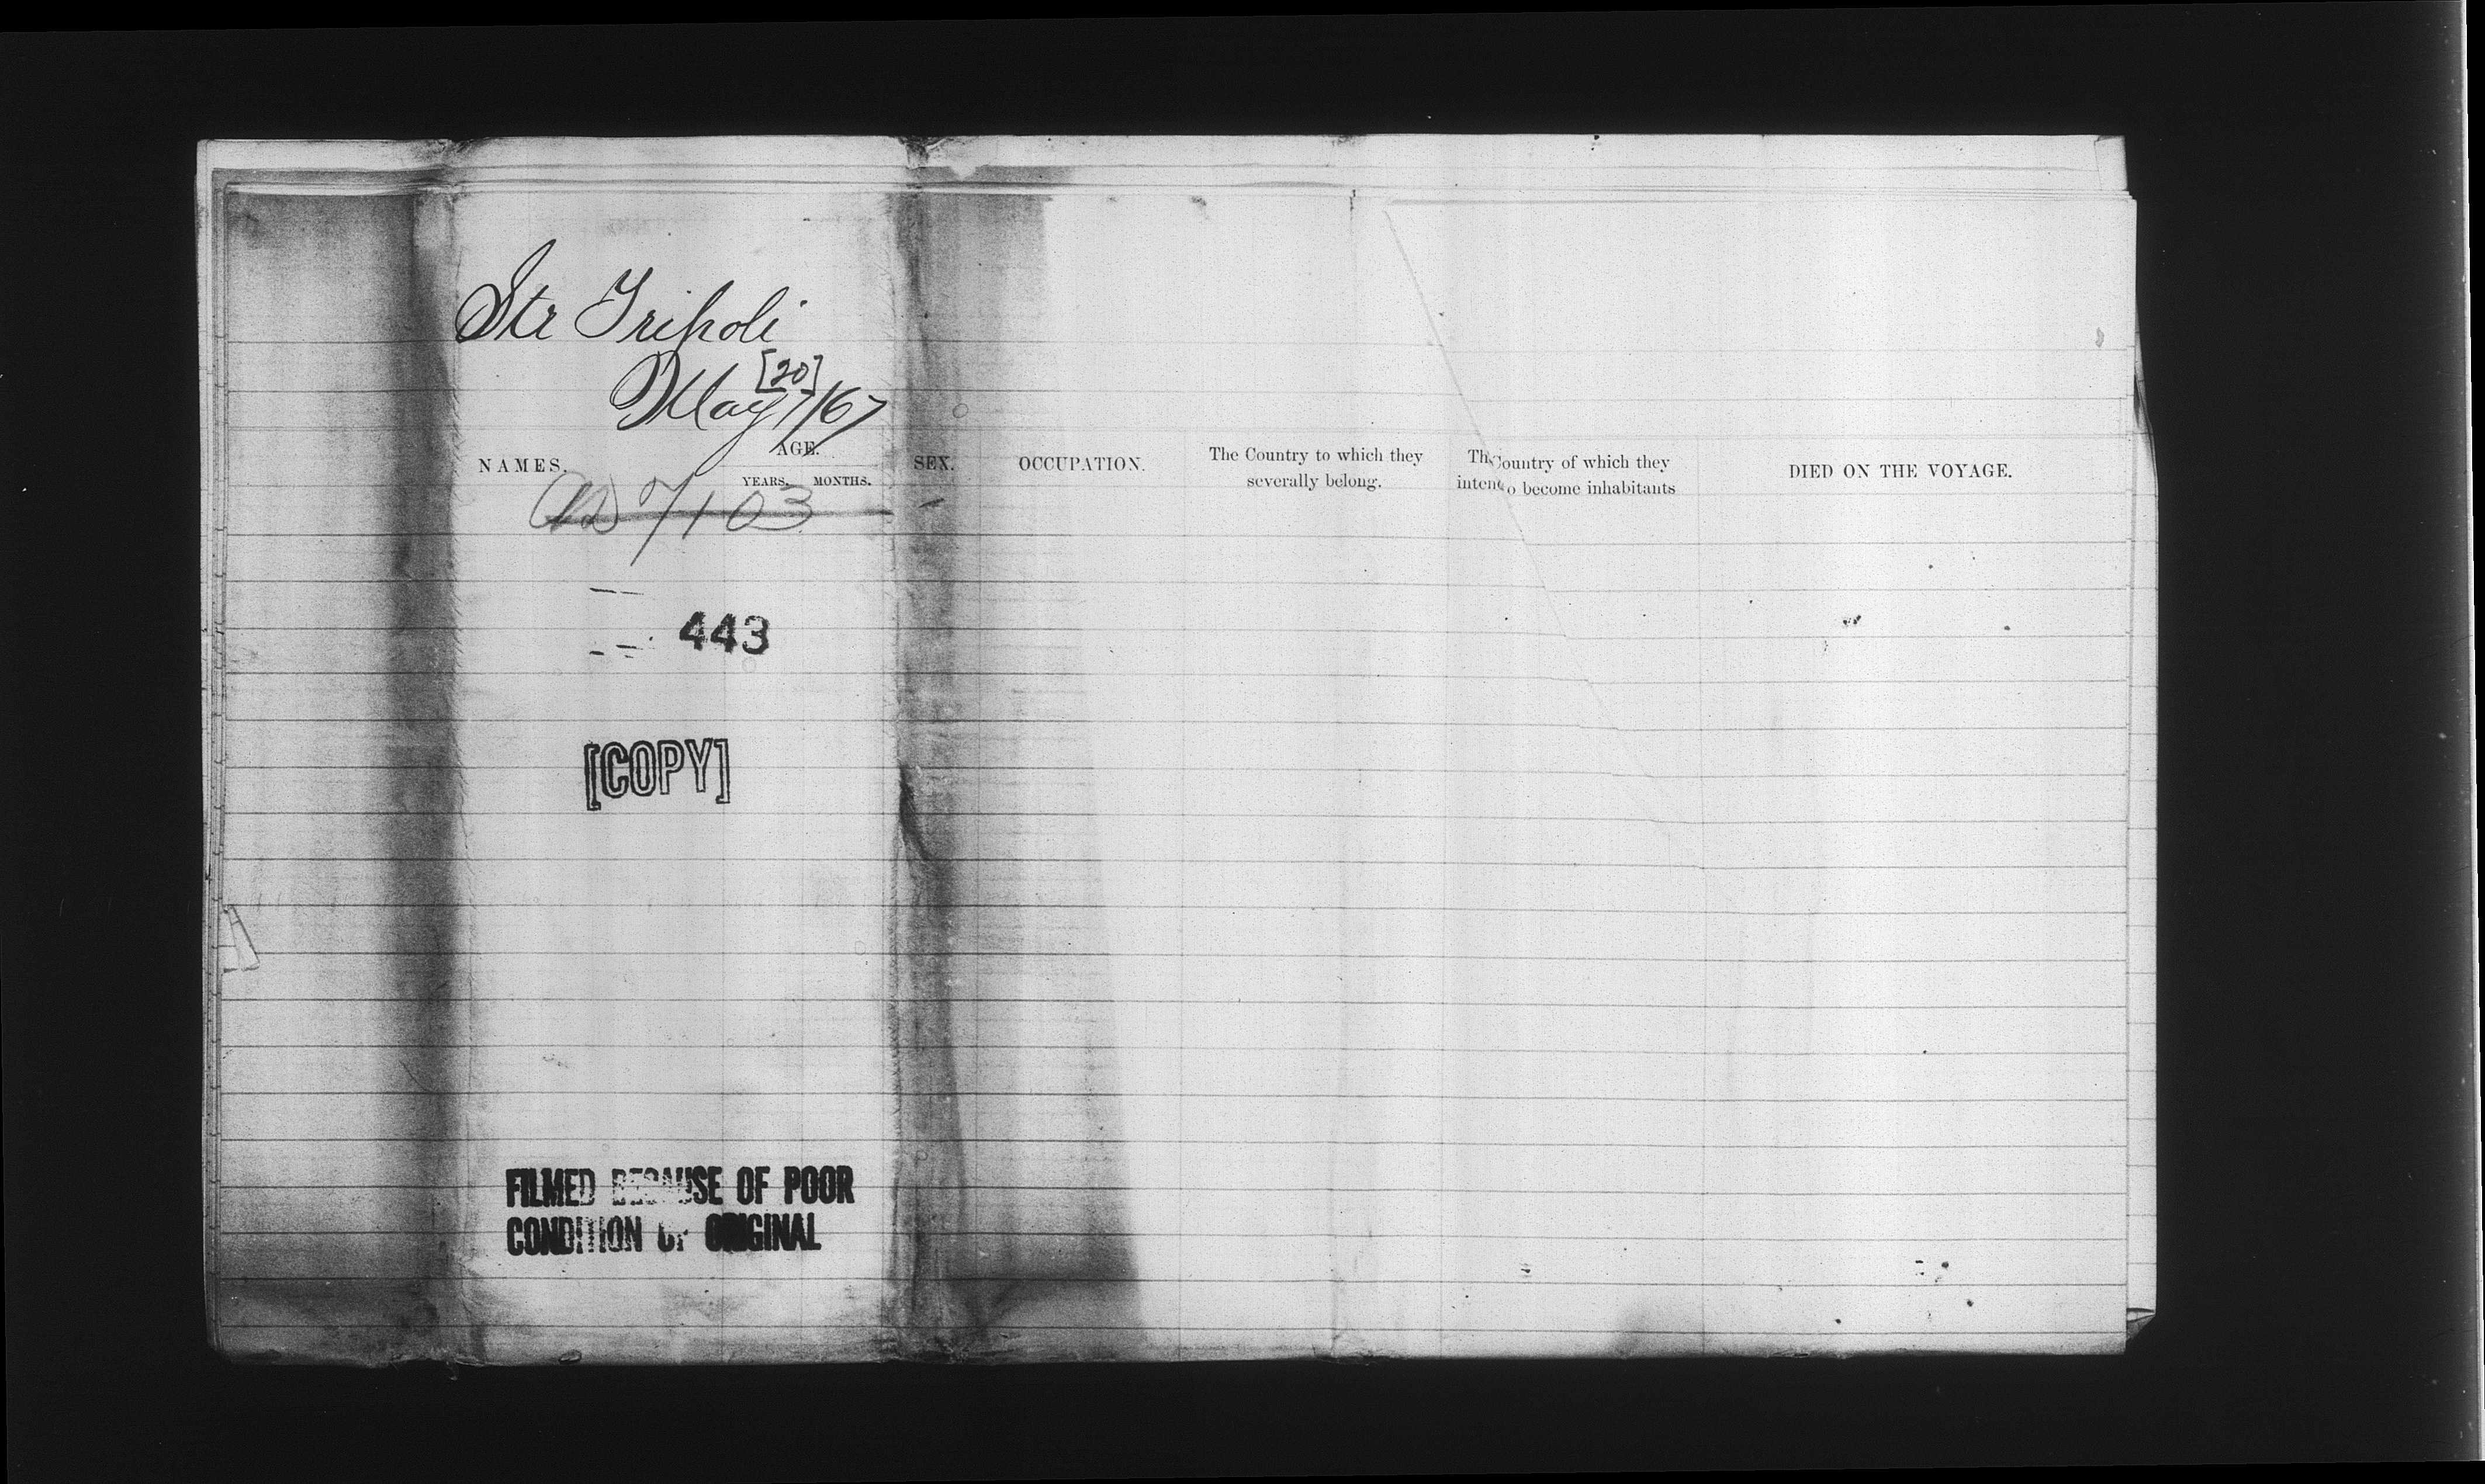 Str Tripoli
[20]
May 7/67
NAMES.
AGE.
YEARS. MONTHS.
SEX.
OCCUPATION.
The Country to which they
severally belong.
The Country of which they
intend to become inhabitants
DIED ON THE VOYAGE.
7103
443
[COPY]
FILMED BECAUSE OF POOR
CONDITION OF ORIGINAL